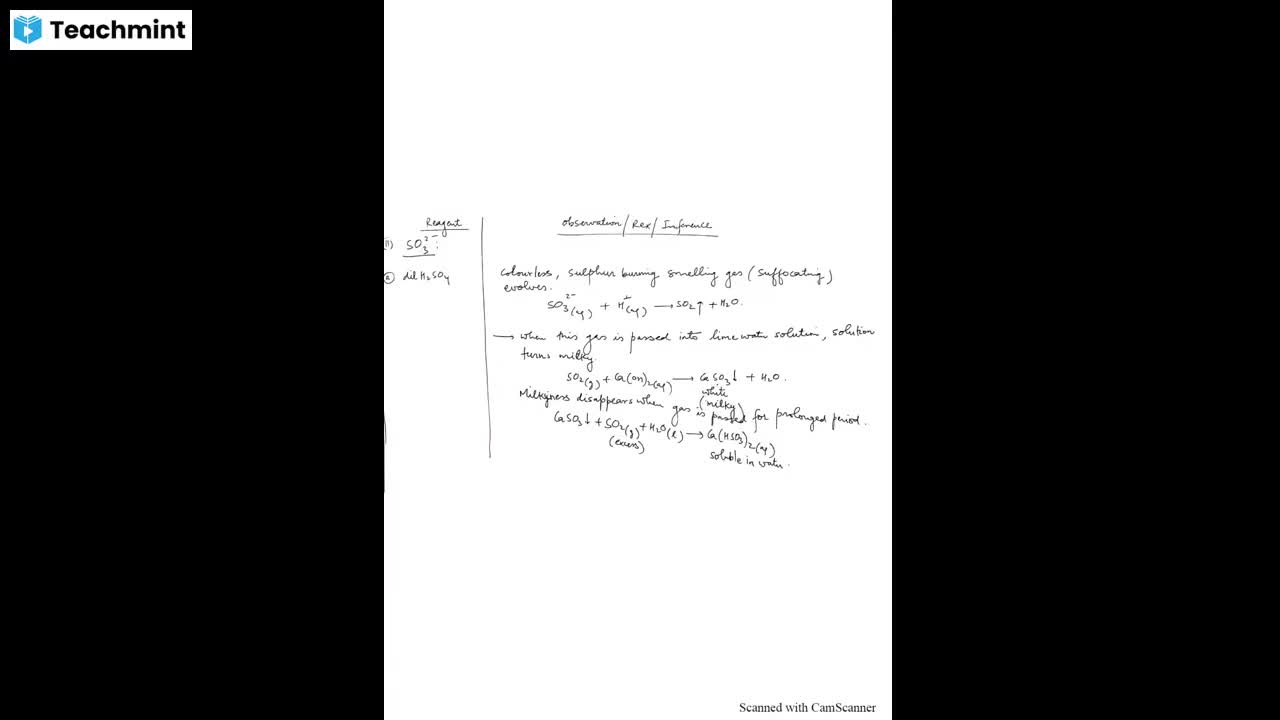 Teachmint
Reagent
Observation/Rex/Inference
II) SO₃²⁻:
a) dil H₂SO₄
Colourless, sulphur burning smelling gas (suffocating)
evolves.
SO₃²⁻(aq) + H⁺(aq) → SO₂↑ + H₂O.
→ when this gas is passed into lime water solution, solution
turns milky.
SO₂(g) + Ca(OH)₂(aq) → CaSO₃↓ + H₂O.
white
(milky)
Milkyness disappears when gas is passed for prolonged period.
CaSO₃↓ + SO₂(g) + H₂O(l) → Ca(HSO₃)₂(aq)
(excess)
soluble in water.
Scanned with CamScanner